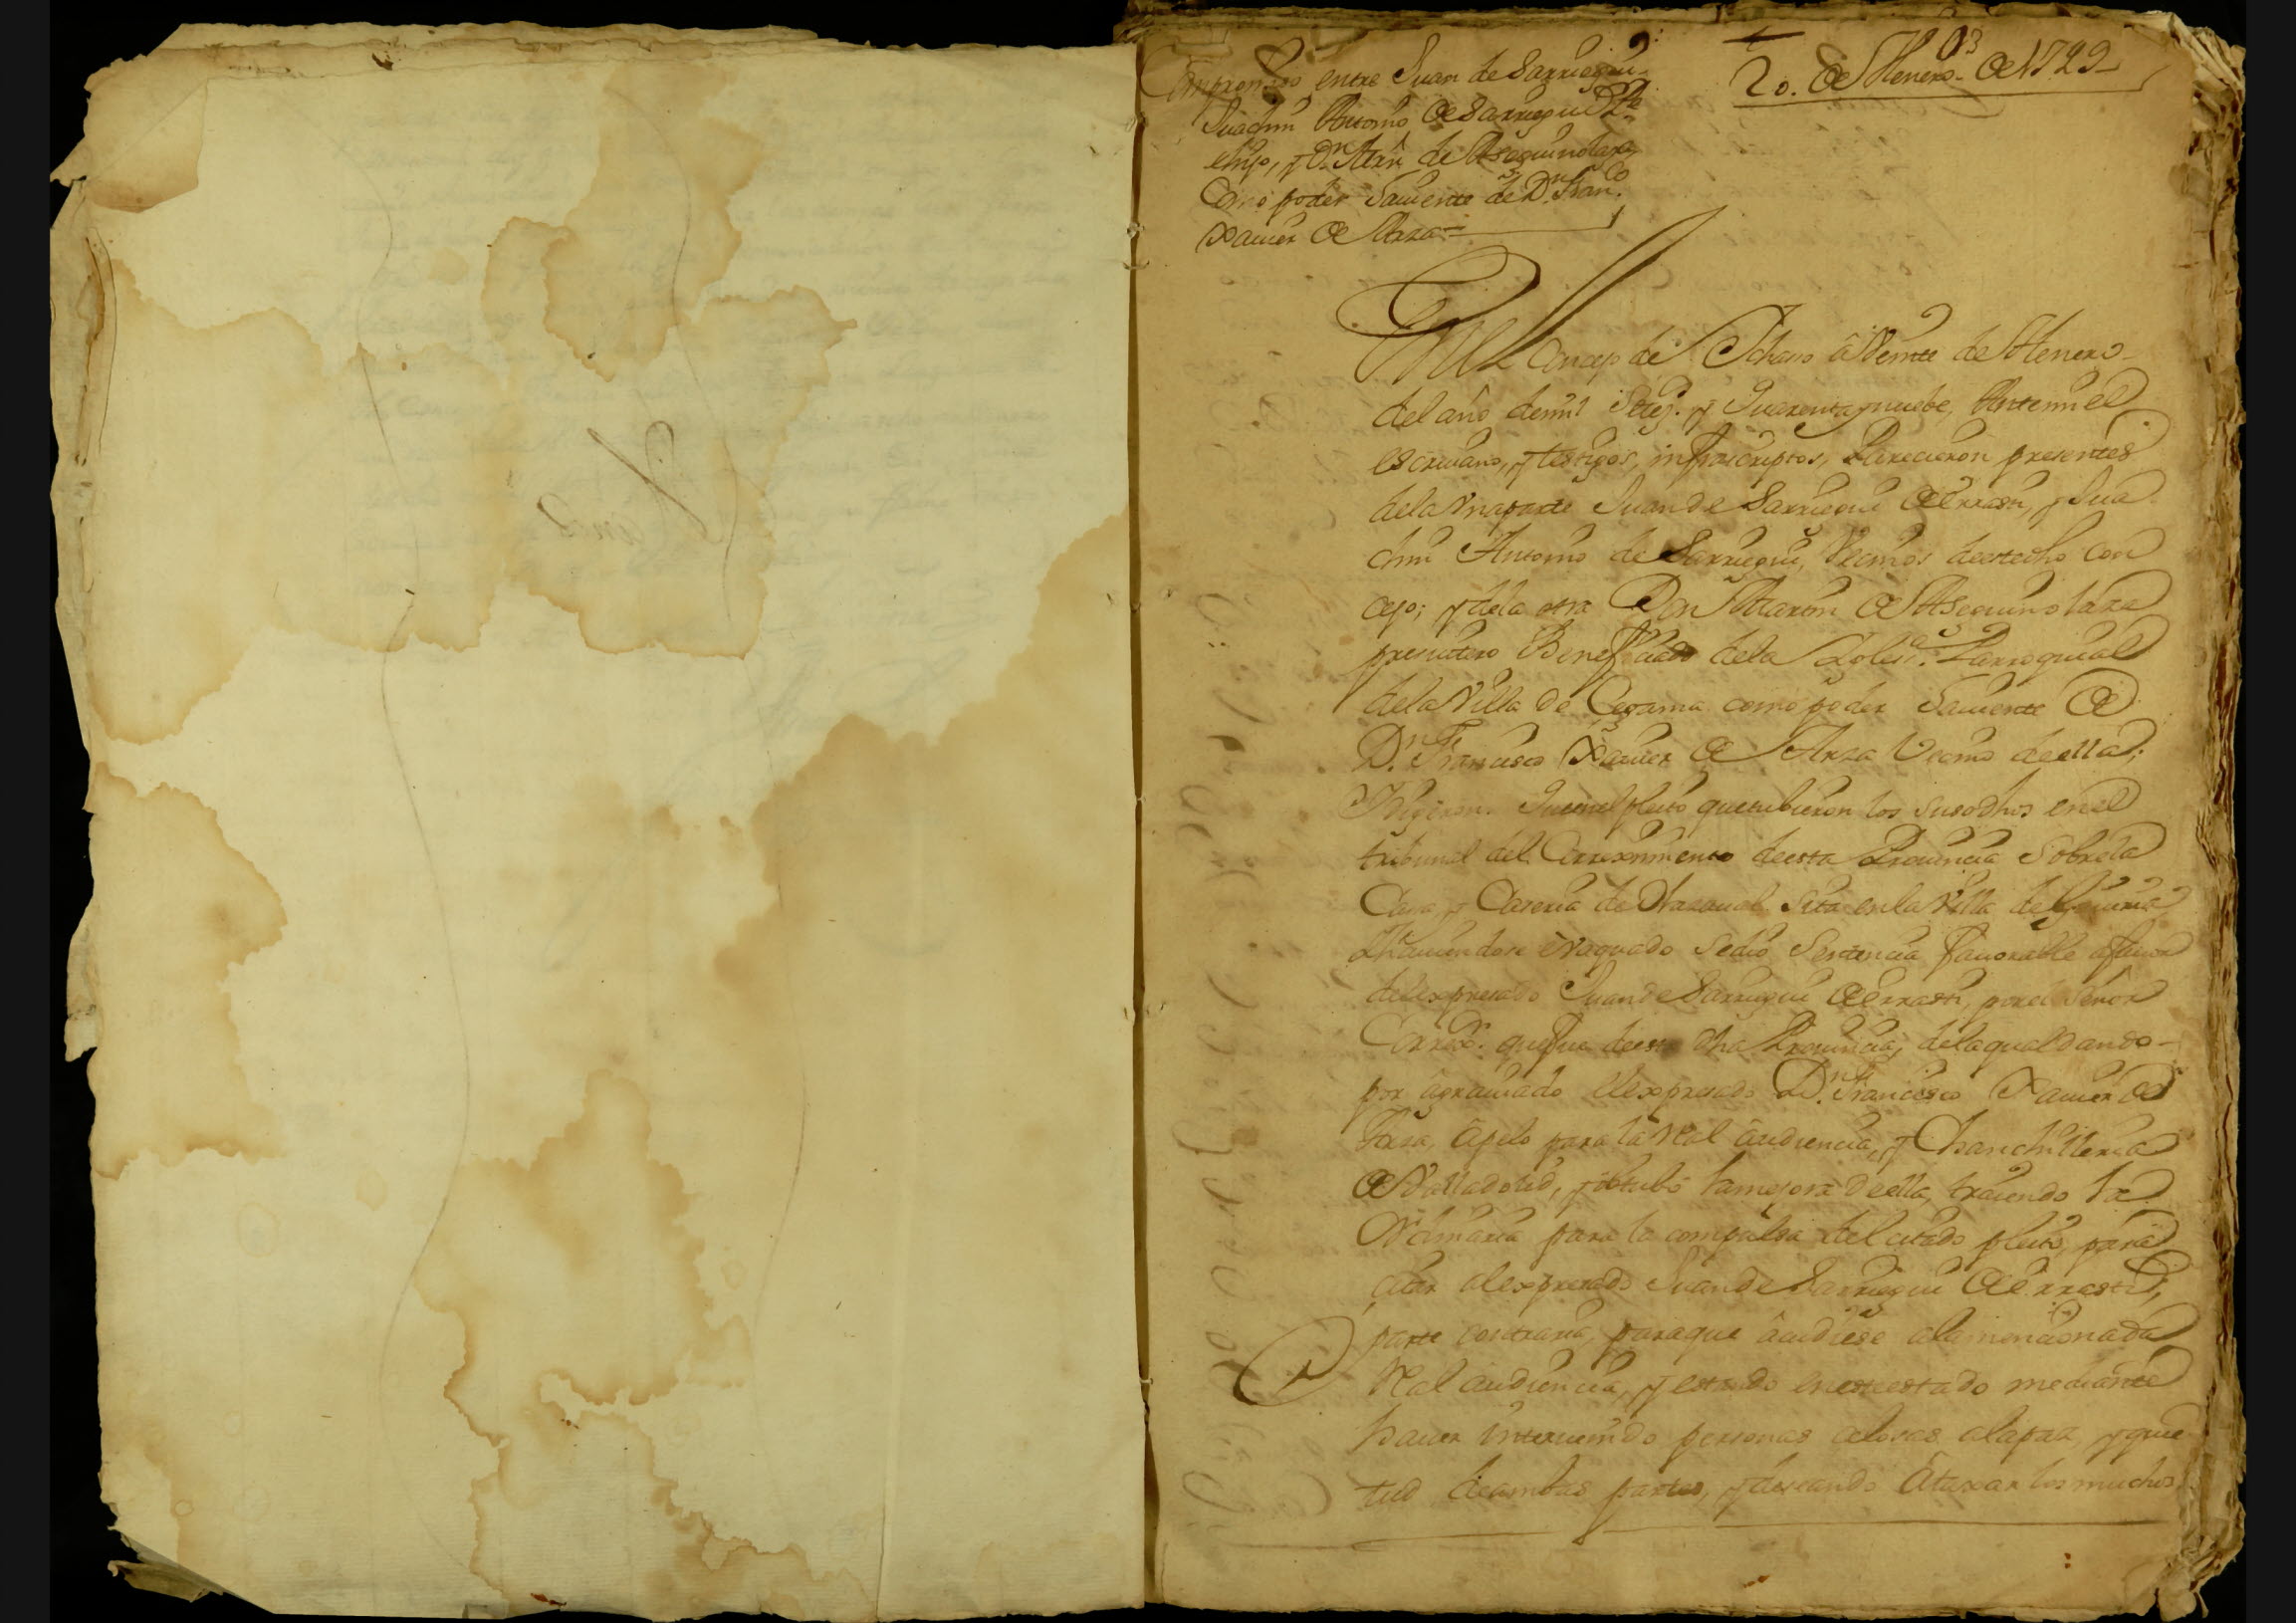 Compromiso entre Juan de Sarriegui
Juachin Antonio de Sarriegui P.e
ehijo, y D.n Mrñ de Aseguinolaza,
Como poder haviente de D.n Fran.co
Xavier de Arza =
20. de Henero de 1749
En el Concejo de Ichaso â Veinte de Henero
del año demil Seteç.s y Quarenta y nuebe, Antemi el
escrivano, y testigos, infraescriptos, Parecieron presentes
dela Vnaparte Juan de Sarriegui de Errasti, y Jua
chin Antonio de Sarriegui, Vecinos deestedho Con
cejo; y dela otra Don Martin de Aseguinolaza
presvitero Beneficiado dela Yglesia Parroquial
dela Villa de Cegama como poder haviente de
D.n Francisco Xavier de Arza Vecino deella;
Y Digeron. Queenelpleito quetubieron los susodhos enel
tribunal del Correximiento deesta Provincia Sobrela
Casa, y Caseria de sita enla Villa de
haviendose evaquado sedio Sentencia favorable afavor
delexpresado Juan de Sarriegui de Errasti, porel Señor
Correx.or quefue deesta dha Provincia; delaqualdando
por agraviado elexpresado D.n Francisco Xavier de
Arza, âpelo para la Real âudiencia, y Chanchilleria
de Valladolid, yôbtubo lamejora deella, traiendo la
para la compulsa delcitado pleito, para
citar alexpresado Juan de Sarriegui de Errasti,
parte contraria, paraque âcudiese alamencionada
Real audiencia, y estando enesteestado mediante
haver intervenido personas celosas alapaz, y quie
tud deambas partes, y deseando âtaxar losmuchos